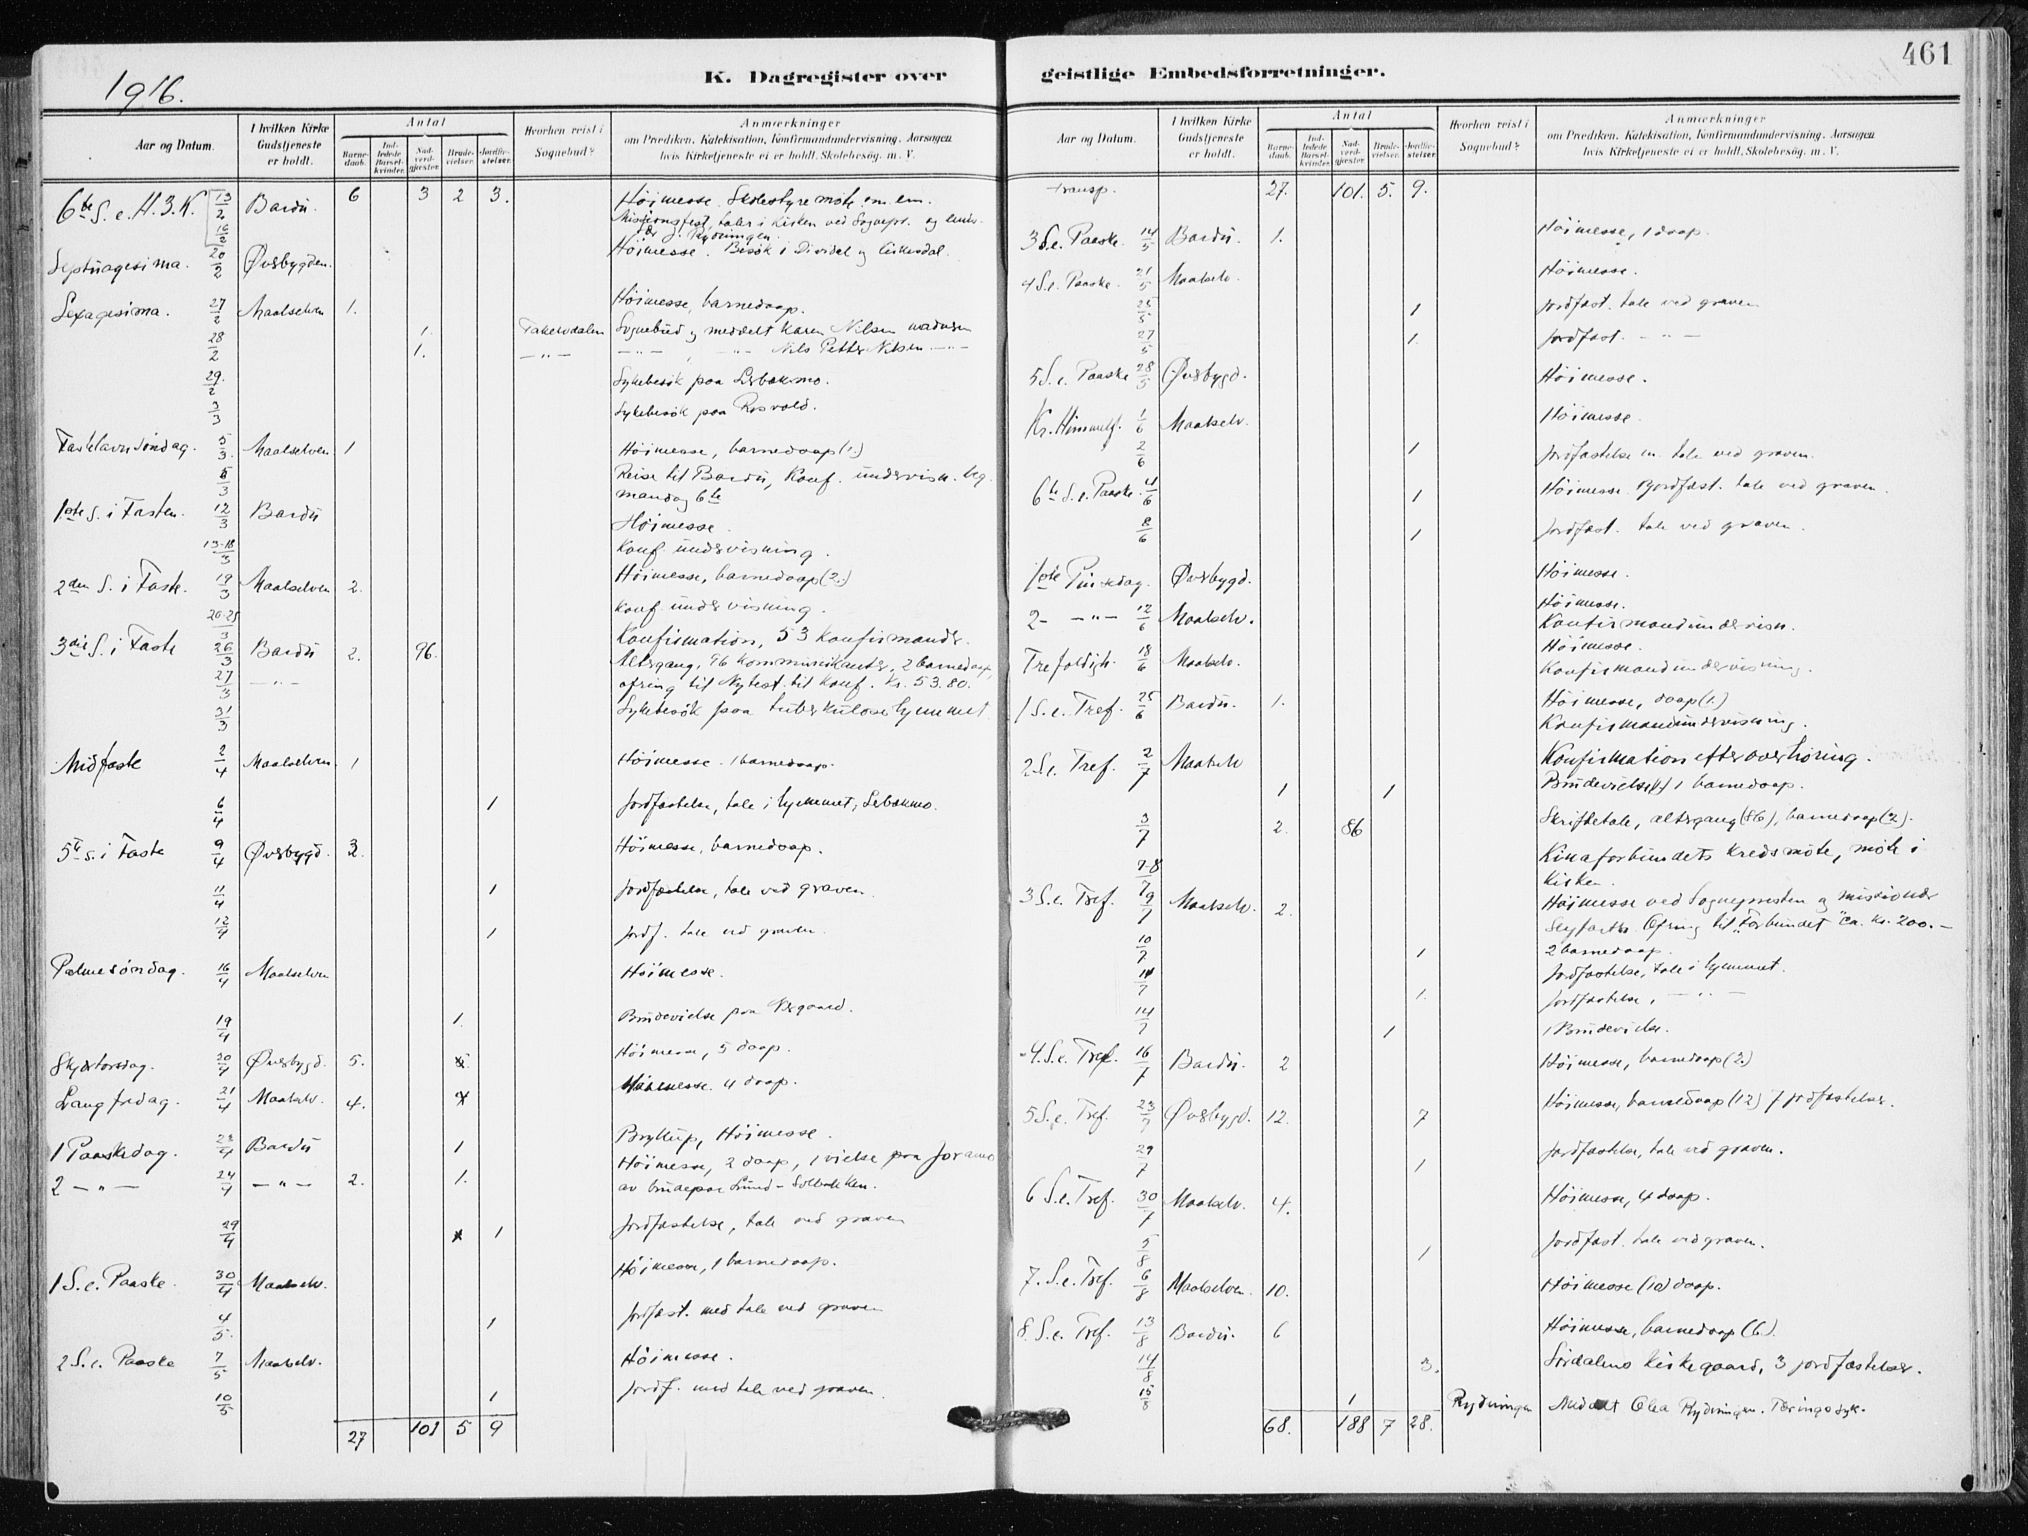 461
1916.
K. Dagregister over geistlige Embedsforretninger.
Aar og Datum. I hvilken Kirke Gudstjeneste er holdt. Antal Barnedaab. Indledede Barselkvinder. Nadverdgjester. Brudevielser. Jordfæstelser. Hvorhen reist i Sognebud? Anmærkninger om Prædiken, Katekisation, Konfirmandundervisning, Aarsagen hvis Kirketjeneste ei er holdt, Skolebesøg. m. V.
6te S. e. H. 3. K. 13/2 Bardu. 6 3 2 3. Höimesse. Skolestyremöte em.
16/2 Missionsfest, taler i Kirken ved Sognepr. og
J. Rydningen.
Septuagesima. 20/2 Øverbygden. Höimesse. Besök i Dividal og Kirkesdal.
Sexagesima. 27/2 Maalselven 1. Höimesse, barnedaap.
28/2 1. Takelvdalen Sognebud og meddelt Karen Nilsen nadveren
1. —"— —"— —"— Nils Petter Nilsen —"—
29/2 Sykebesök paa
3/3 Sykebesök paa Rosvold.
Fastelavnsöndag. 5/3 Maalselven 1 Höimesse, barnedaap (1.)
6/3 Reise til Bardu, Konf. undervisn. beg.
mandag 6te
1ste S. i Fasten. 12/3 Bardu Höimesse.
13-18/3 Konf. undervisning.
2den S. i Faste. 19/3 Maalselven 2. Höimesse, barnedaap (2.)
20-25/3 Konf. undervisning.
3die S. i Faste 26/3 Bardu 2. 96. Konfirmation, 53 Konfirmander.
27/3 —"— Altergang, 96 Kommunikanter, 2 barnedaap,
ofring til Nytest. til Konf. Kr. 53.80.
31/3 Sykebesök paa tuberkulosehjemmet
Midfaste 2/4 Maalselven 1 Höimesse. 1 barnedaap.
6/4 1 Jordfæstelse, tale i hjemmet,
5te S. i Faste 9/4 Øverbygd. 3. Höimesse, barnedaap.
11/4 1 Jordfæstelse, tale ved graven.
12/4 1 Jordf. tale ved graven.
Palmesöndag. 16/4 Maalselven Höimesse.
19/4 1. Brudevielse paa
Skjærtorsdag. 20/4 Øverbygd. 5. Höimesse, 5 daap.
Langfredag. 21/4 Maalselv. 4. Höimesse. 4 daap.
1 Paaskedag. 23/4 Bardu 1 Bryllup, Höimesse.
2 —"— 24/4 —"— 2. 1. Höimesse, 2 daap, 1 vielse paa
av brudepar
29/4 1 Jordfæstelse, tale ved graven
1 S. e. Paaske. 30/4 Maalselv. Höimesse, 1 barnedaap.
4/5. 1 Jordfæst. med tale ved graven
2 S. e. Paaske 7/5 Maalselv. Höimesse.
10/5 1 Jordf. med tale ved graven.
27 101 5 9
Aar og Datum. I hvilken Kirke Gudstjeneste er holdt. Antal Barnedaab. Indledede Barselkvinder. Nadverdgjester. Brudevielser. Jordfæstelser. Hvorhen reist i Sognebud? Anmærkninger om Prædiken, Katekisation, Konfirmandundervisning, Aarsagen hvis Kirketjeneste ei er holdt, Skolebesøg. m. V.
Transp. 27. 101. 5. 9.
3 S. e. Paaske. 14/5 Bardu. 1. Höimesse, 1 daap.
4 S. e. Paaske. 21/5 Maalselv. Höimesse.
25/5 1 Jordfæst. tale ved graven
27/5 1. Jordfæst. —"—
5 S. e. Paaske 28/5 Øverbygd. Höimesse.
Kr. Himmelf. 1/6 Maalselv. Höimesse.
2/6 1 Jordfæstelse m. tale ved graven.
6te S. e. Paaske. 4/6 1 Höimesse. Jordfæst. tale ved graven.
8/6 1 Jordfæst. tale ved graven.
1ste Pinsedag. Øverbygd. Höimesse.
2- —"— 12/6 Maalselv. Höimesse.
Konfirmandundervisn.
Trefoldigh. 18/6 Maalselv. Höimesse.
Konfirmandundervisning.
1 S. e. Tref. 25/6 Bardu. 1. Höimesse, daap (1.)
Konfirmandundervisning.
2 S. e. Tref. 2/7 Maalselv Konfirmation efter overhöring.
1 1 Brudevielse (1) 1 barnedaap.
3/7 2. 86 Skriftetale, altergang (86), barnedaap (2).
7-8/7 Kinaforbundets kredsmöte, möte i
Kirken.
3 S. e. Tref. 9/7 Maalselv. 2. Höimesse ved Sognepresten og missionær
Ofring til "Forbundet" ca. Kr. 200.—
2 barnedaap.
10/7 1 Jordfæstelse, tale i hjemmet.
11/7 1. Jordfæstelse, —"—
14/7 1 1 Brudevielse.
4. S. e. Tref. 16/7 Bardu. 2 Höimesse, barnedaap (2.)
5 S. e. Tref. 23/7 Øverbygd. 12. 7 Höimesse, barnedaap (12) 7 jordfæstelser.
29/7 1 Jordfæstelse, tale ved graven.
6 S. e. Tref. 30/7 Maalselv. 4. Höimesse, 4 daap.
5/8 1 Jordfæst. tale ved graven.
7. S. e. Tref. 6/8 Maalselven. 10. Höimesse (10) daap.
8. S. e. Tref. 13/8 Bardu. 6 Höimesse, barnedaap (6).
14/8 3. Sördalens Kirkegaard, 3 jordfæstelser.
15/8 1 Rydningen Meddelt Olea Rydningen. Tæringssyk.
68. 188 7 28.